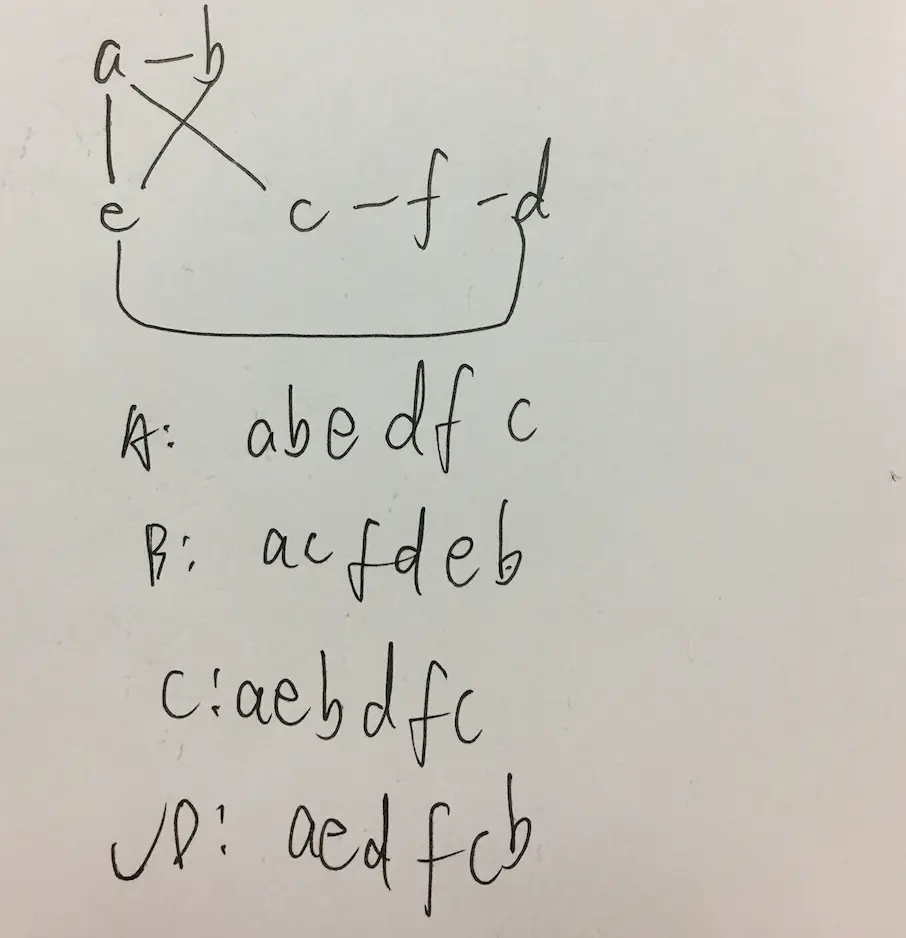 a - b
e c - f - d
A: abedfc
B: acfdeb
C: aebdfc
✓D: aedfcb